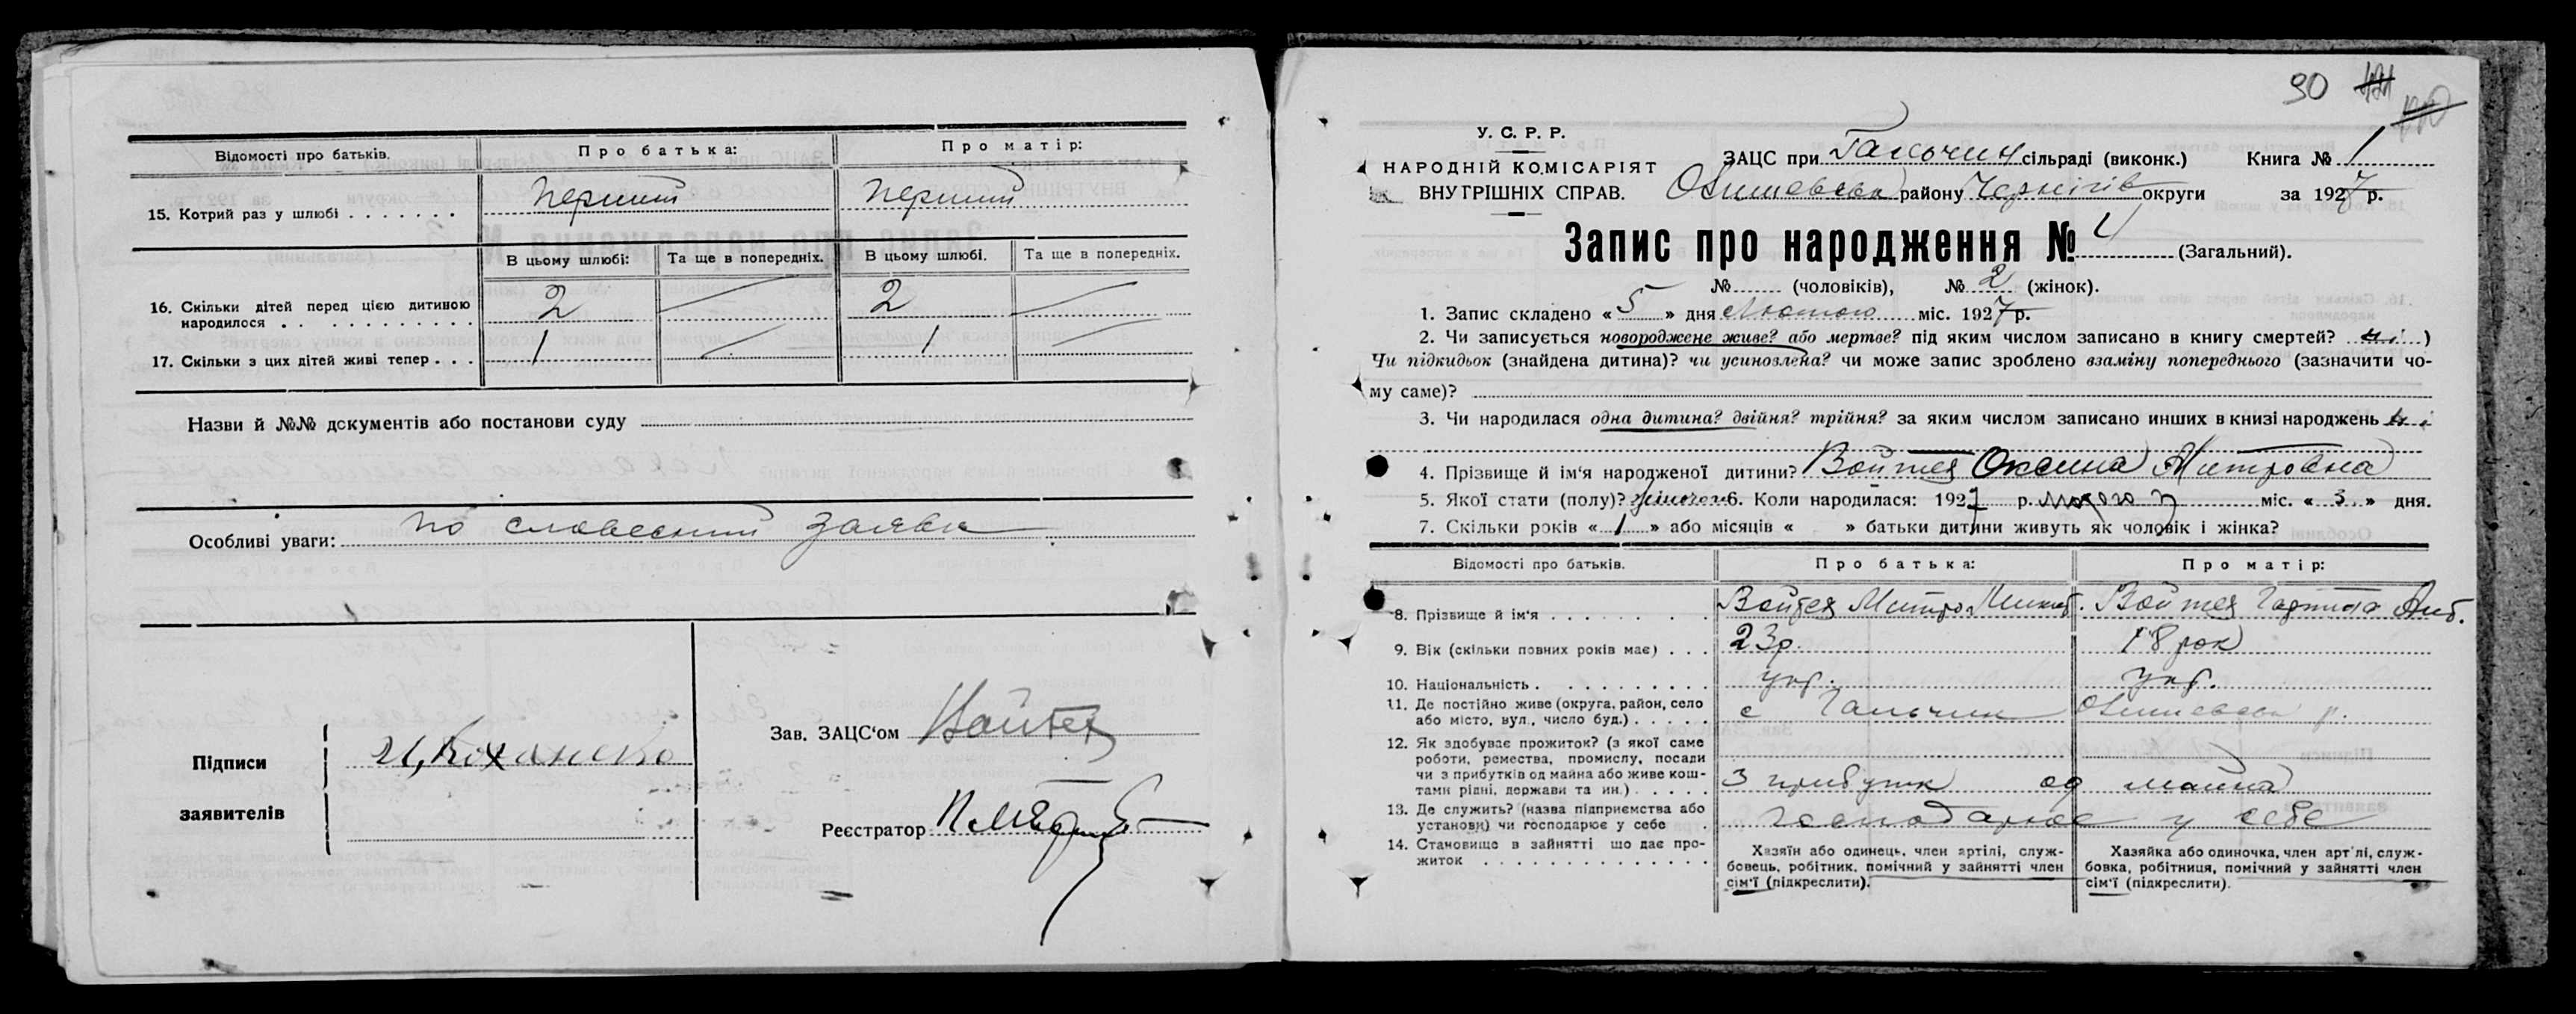 Відомості про батьків. Про батька: Про матір:
15. Котрий раз у шлюбі . . . . . . . перший перший
В цьому шлюбі: Та ще в попередніх. В цьому шлюбі. Та ще в попередніх.
16. Скільки дітей перед цією дитиною
народилося . . . . . . . . . . . 2 — 2 —
17. Скільки з цих дітей живі тепер . . . 1 — 1 —
Назви й №№ документів або постанови суду
Особливі уваги: по словесний заявы
Підписи
заявителів
И, Коханенко
Зав. ЗАЦС'ом Войтех
Реєстратор
90
У. С. Р. Р.
НАРОДНІЙ КОМІСАРІЯТ
ВНУТРІШНІХ СПРАВ.
ЗАЦС при Гальчин сільраді (виконк.) Книга № 1
Олишевськ району Чернігів округи за 1927 р.
Запис про народження № 4 (Загальний).
№ (чоловіків), № 2 (жінок).
1. Запис складено « 5 » дня Лютого міс. 1927 р.
2. Чи записується новороджене живе? або мертве? під яким числом записано в книгу смертей? ні )
Чи підкидьок (знайдена дитина)? чи усиновлена? чи може запис зроблено взаміну попереднього (зазначити чо-
му саме)?
3. Чи народилася одна дитина? двійня? трійня? за яким числом записано инших в книзі народжень ні
4. Прізвище й ім'я народженої дитини? Войтех Оксина Митровна
5. Якої стати (полу)? жіночеи 6. Коли народилася: 1927 р. лютого міс. « 3 » дня.
7. Скільки років « 1 » або місяців « » батьки дитини живуть як чоловік і жінка?
Відомості про батьків. Про батька: Про матір:
8. Прізвище й ім'я . . . . . . . . Войтех Митро Микит. Войтех Гарпина Ант.
9. Вік (скільки повних років має) . . . 23 р. 18 рок
10. Національність . . . . . . . . . . укр. укр.
11. Де постійно живе (округа, район, село
або місто, вул., число буд.) . . . . . с Гальчин Олишевськ р.
12. Як здобуває прожиток? (з якої саме
роботи, ремества, промислу, посади
чи з прибутків од майна або живе кош-
тами рідні, держави та ин.) . . . . . з прибутк од майна
13. Де служить? (назва підприємства або
установи) чи господарює у себе . господарює у себе
14. Становище в зайнятті що дає про-
житок . . . . . . . . . . . . . .
Хазяїн або одинець, член артілі, служ-
бовець, робітник, помічний у зайнятті член
сім'ї (підкреслити).
Хазяйка або одиночка, член арт'лі, служ-
бовка, робітниця, помічний у зайнятті член
сім'ї (підкреслити).